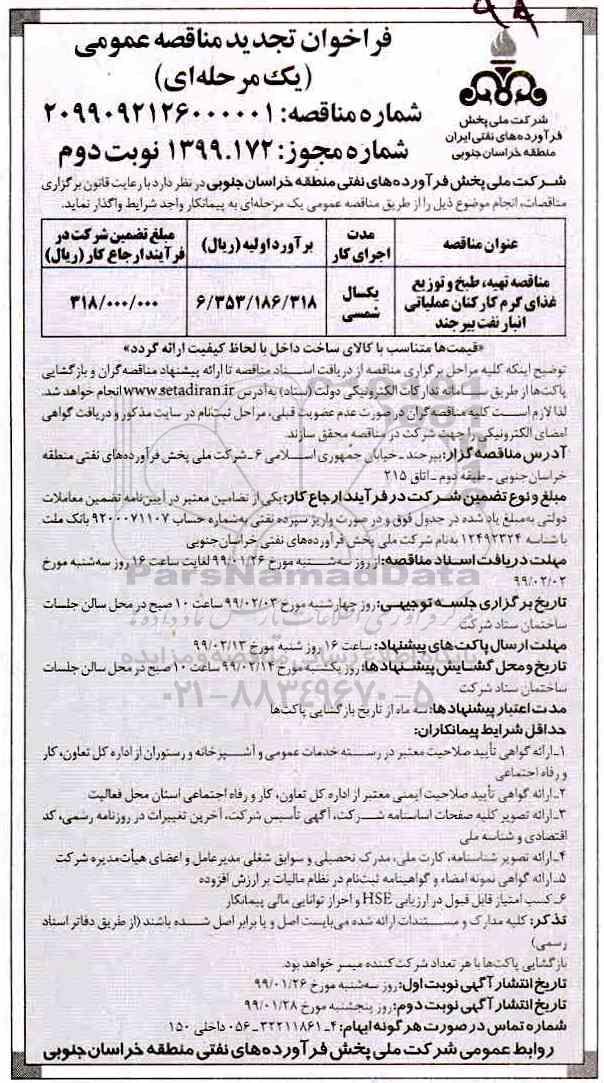 ۹۸
فراخوان تجدید مناقصه عمومی
(یک مرحله‌ای)
شماره مناقصه: ۲۰۹۹۰۹۲۱۲۶۰۰۰۰۰۱
شماره مجوز: ۱۳۹۹.۱۷۲ نوبت دوم
شرکت ملی پخش
فرآورده‌های نفتی ایران
منطقه خراسان جنوبی
شرکت ملی پخش فرآورده‌های نفتی منطقه خراسان جنوبی در نظر دارد با رعایت قانون برگزاری
مناقصات، انجام موضوع ذیل را از طریق مناقصه عمومی یک مرحله‌ای به پیمانکار واجد شرایط واگذار نماید.
عنوان مناقصه
مدت اجرای کار
برآورد اولیه (ریال)
مبلغ تضمین شرکت در فرآیند ارجاع کار (ریال)
مناقصه تهیه، طبخ و توزیع غذای گرم کارکنان عملیاتی انبار نفت بیرجند
یکسال شمسی
۶/۳۵۳/۱۸۶/۳۱۸
۳۱۸/۰۰۰/۰۰۰
«قیمت‌ها متناسب با کالای ساخت داخل با لحاظ کیفیت ارائه گردد»
توضیح اینکه کلیه مراحل برگزاری مناقصه از دریافت اسناد مناقصه تا ارائه پیشنهاد مناقصه‌گران و بازگشایی
پاکت‌ها از طریق سامانه تدارکات الکترونیکی دولت (ستاد) به آدرس www.setadiran.ir انجام خواهد شد.
لذا لازم است کلیه مناقصه‌گران در صورت عدم عضویت قبلی، مراحل ثبت‌نام در سایت مذکور و دریافت گواهی
امضای الکترونیکی را جهت شرکت در مناقصه محقق سازند.
آدرس مناقصه گزار: بیرجند ـ خیابان جمهوری اسلامی ۶ ـ شرکت ملی پخش فرآورده‌های نفتی منطقه
خراسان جنوبی ـ طبقه دوم ـ اتاق ۲۱۵
مبلغ و نوع تضمین شرکت در فرآیند ارجاع کار: یکی از تضامین معتبر در آیین‌نامه تضمین معاملات
دولتی به مبلغ یاد شده در جدول فوق و در صورت واریز سپرده نقدی به شماره حساب ۹۲۰۰۰۷۱۱۰۷ بانک ملت
با شناسه ۱۲۴۹۲۳۲۴ به نام شرکت ملی پخش فرآورده‌های نفتی خراسان جنوبی
مهلت دریافت اسناد مناقصه: از روز سه‌شنبه مورخ ۹۹/۰۱/۲۶ لغایت ساعت ۱۶ روز سه‌شنبه مورخ
۹۹/۰۲/۰۲
ParsNamadData
تاریخ برگزاری جلسه توجیهی: روز چهارشنبه مورخ ۹۹/۰۲/۰۳ ساعت ۱۰ صبح در محل سالن جلسات
ساختمان ستاد شرکت
مهلت ارسال پاکت‌های پیشنهاد: ساعت ۱۶ روز شنبه مورخ ۹۹/۰۲/۱۳
تاریخ و محل گشایش پیشنهادها: روز یکشنبه مورخ ۹۹/۰۲/۱۴ ساعت ۱۰ صبح در محل سالن جلسات
ساختمان ستاد شرکت
۰۲۱-۸۸۳۴۹۶۷۰-۵
مدت اعتبار پیشنهادها: سه ماه از تاریخ بازگشایی پاکت‌ها
حداقل شرایط پیمانکاران:
۱ـ ارائه گواهی تأیید صلاحیت معتبر در رسته خدمات عمومی و آشپزخانه و رستوران از اداره کل تعاون، کار
و رفاه اجتماعی
۲ـ ارائه گواهی تأیید صلاحیت ایمنی معتبر از اداره کل تعاون، کار و رفاه اجتماعی استان محل فعالیت
۳ـ ارائه تصویر کلیه صفحات اساسنامه شرکت، آگهی تأسیس شرکت، آخرین تغییرات در روزنامه رسمی، کد
اقتصادی و شناسه ملی
۴ـ ارائه تصویر شناسنامه، کارت ملی، مدرک تحصیلی و سوابق شغلی مدیرعامل و اعضای هیأت‌مدیره شرکت
۵ـ ارائه گواهی نمونه امضاء و گواهینامه ثبت‌نام در نظام مالیات بر ارزش افزوده
۶ـ کسب امتیاز قابل قبول در ارزیابی HSE و احراز توانایی مالی پیمانکار
تذکر: کلیه مدارک و مستندات ارائه شده می‌بایست اصل و یا برابر اصل شده باشند (از طریق دفاتر اسناد
رسمی)
بازگشایی پاکت‌ها با هر تعداد شرکت‌کننده میسر خواهد بود.
تاریخ انتشار آگهی نوبت اول: روز سه‌شنبه مورخ ۹۹/۰۱/۲۶
تاریخ انتشار آگهی نوبت دوم: روز پنجشنبه مورخ ۹۹/۰۱/۲۸
شماره تماس در صورت هرگونه ابهام: ۴ـ ۳۲۲۱۱۸۶۱ـ۰۵۶ داخلی ۱۵۰
روابط عمومی شرکت ملی پخش فرآورده‌های نفتی منطقه خراسان جنوبی